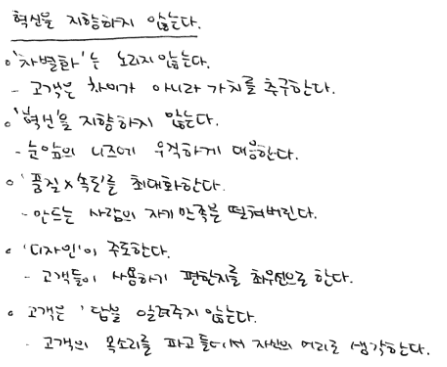 혁신을 지향하지 않는다.
• '차별화'는 노리지 않는다.
- 고객은 차이가 아니라 가치를 추구한다.
• '혁신'을 지향하지 않는다.
- 눈앞의 니즈에 우직하게 대응한다.
• '품질×속도'를 최대화한다.
- 만드는 사람의 자기만족은 떨쳐버린다.
• '디자인'이 주도한다.
- 고객들이 사용하기 편한지를 최우선으로 한다.
• 고객은 '답'을 알려주지 않는다.
- 고객의 목소리를 파고들어서 자신의 머리로 생각한다.